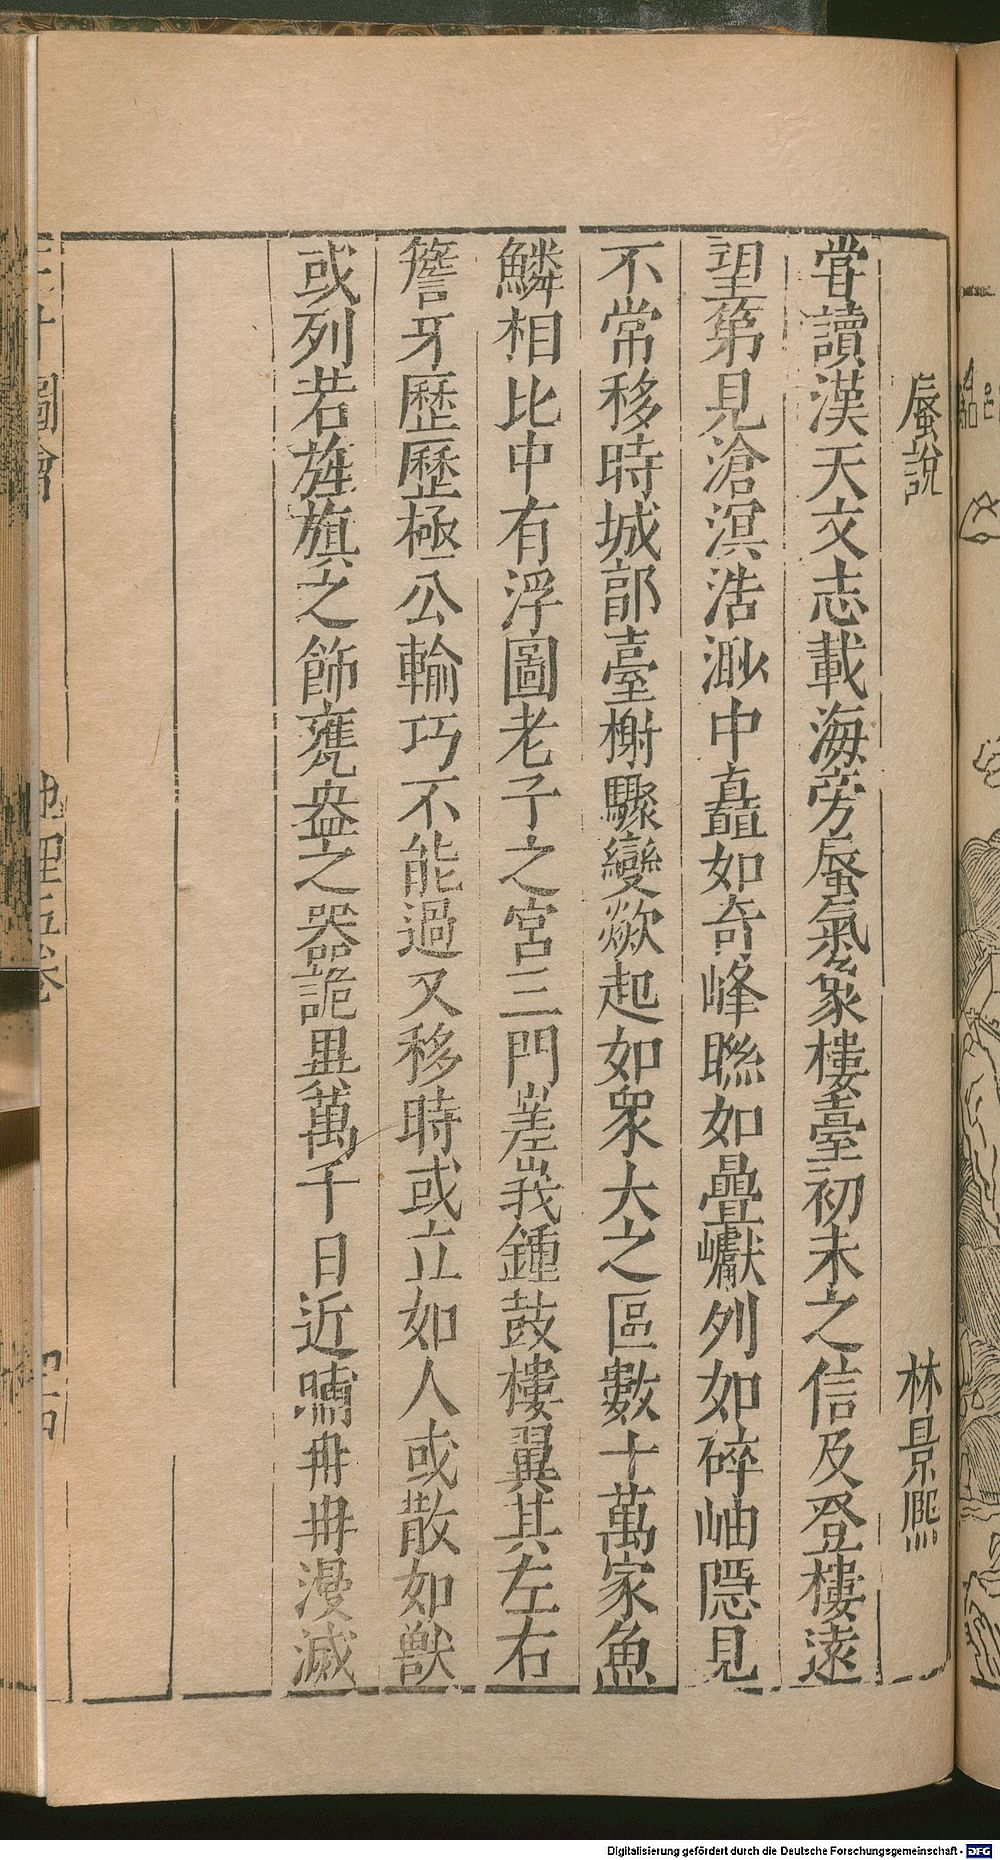 蜃說 林景熈
甞讀漢天文志載海旁蜃氣象樓臺初未之信及登樓遠
望第見滄溟浩渺中矗如奇峰聯如疊巘列如碎岫隠見
不常移時城郭臺榭驟變歘起如衆大之區數十萬家魚
鱗相比中有浮圖老子之宮三門嵳峩鍾鼓樓翼其左右
簷牙歷歷極公輸巧不能過又移時或立如人或散如獸
或列若旌旗之飾甕盎之器詭異萬千日近晡冉冉漫滅
三才圖會
地理五卷
Digitalisierung gefördert durch die Deutsche Forschungsgemeinschaft - DFG